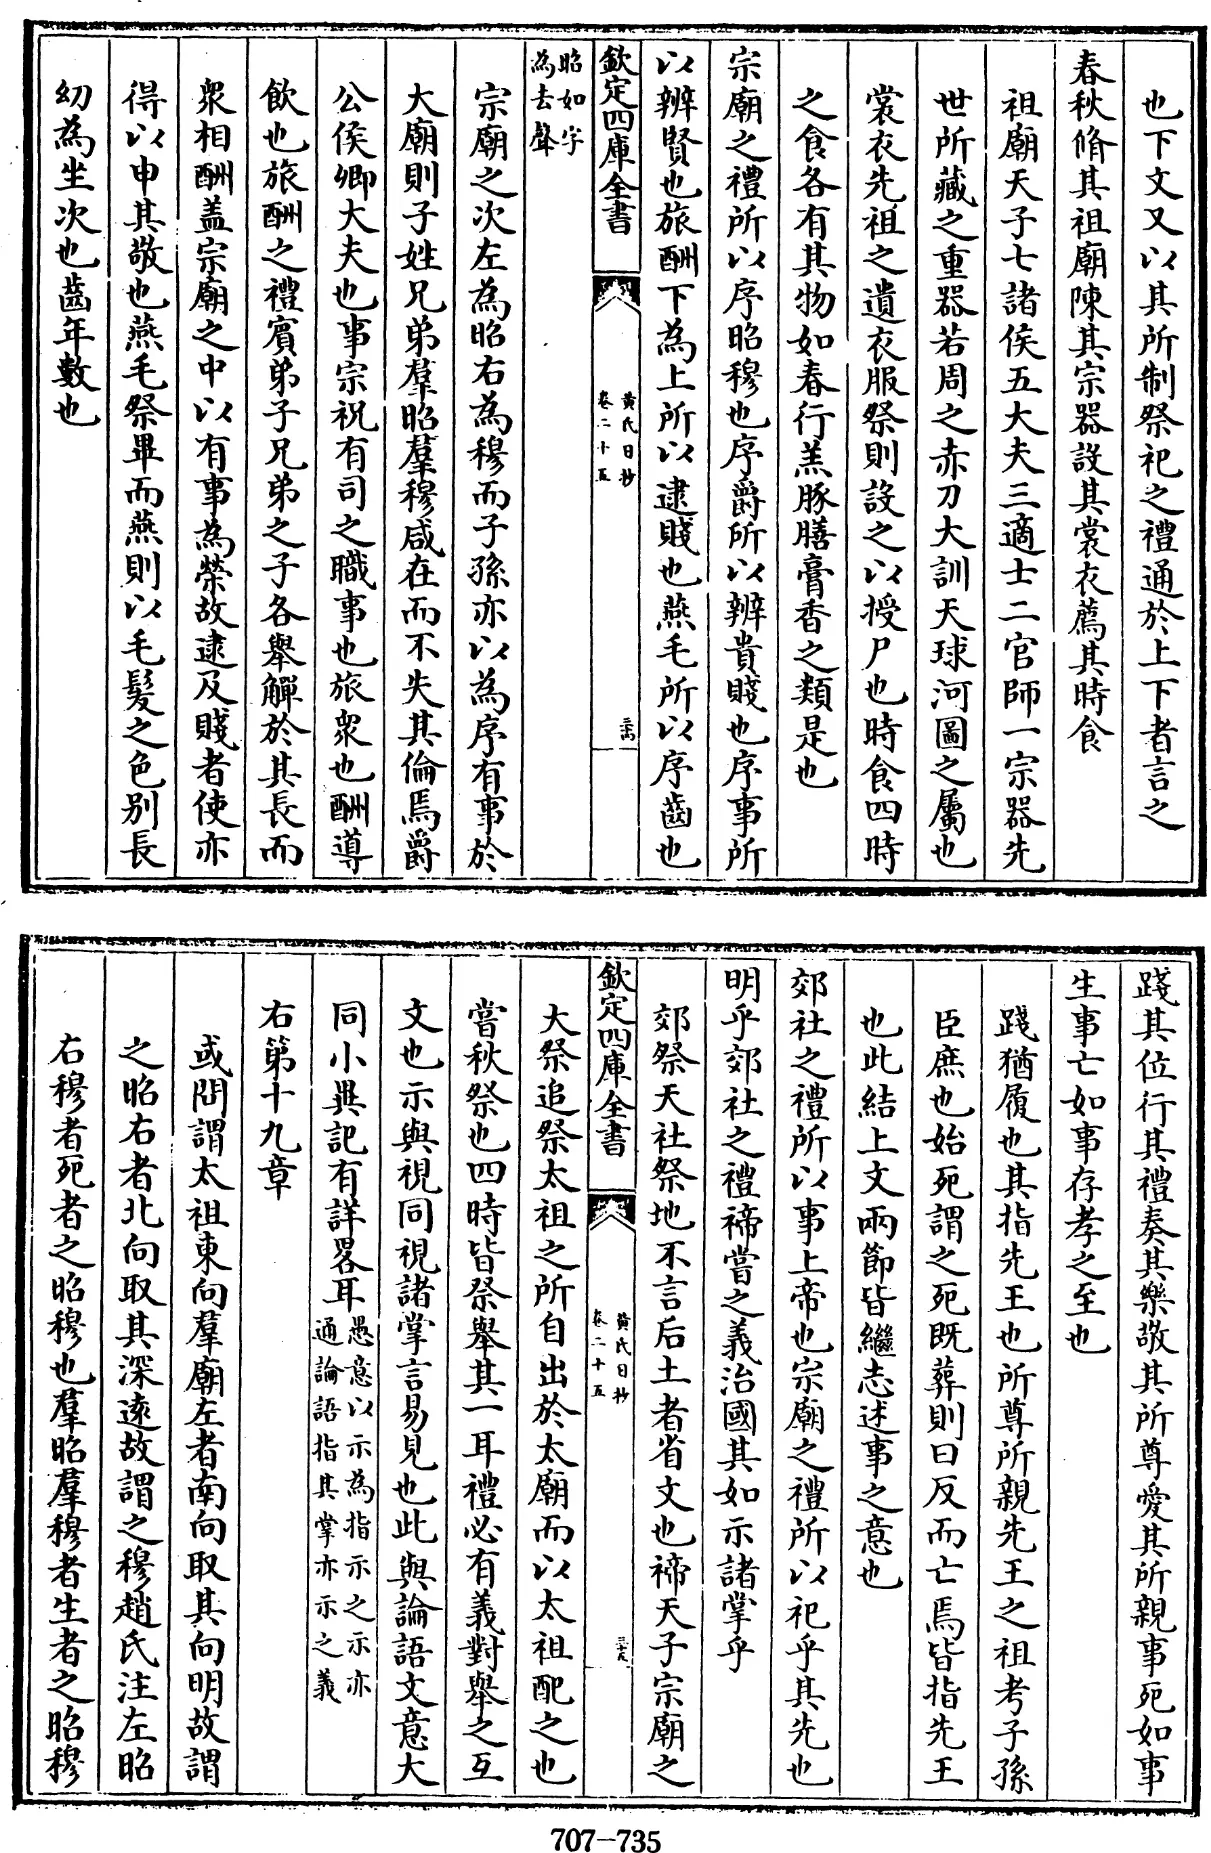 也下文又以其所制祭祀之禮通於上下者言之
春秋脩其祖廟陳其宗器設其裳衣薦其時食
祖廟天子七諸侯五大夫三適士二官師一宗器先
世所藏之重器若周之赤刀大訓天球河圖之屬也
裳衣先祖之遺衣服祭則設之以授尸也時食四時
之食各有其物如春行羔豚膳膏香之類是也
宗廟之禮所以序昭穆也序爵所以辨貴賤也序事所
以辨賢也旅酬下為上所以逮賤也燕毛所以序齒也
欽定四庫全書
黄氏日抄
卷二十五
昭如字
為去聲
宗廟之次左為昭右為穆而子孫亦以為序有事於
大廟則子姓兄弟羣昭羣穆咸在而不失其倫焉爵
公侯卿大夫也事宗祝有司之職事也旅衆也酬導
飲也旅酬之禮賓弟子兄弟之子各舉觶於其長而
衆相酬盖宗廟之中以有事為榮故逮及賤者使亦
得以申其敬也燕毛祭畢而燕則以毛髮之色别長
幼為坐次也齒年數也
踐其位行其禮奏其樂敬其所尊愛其所親事死如事
生事亡如事存孝之至也
踐猶履也其指先王也所尊所親先王之祖考子孫
臣庶也始死謂之死既葬則曰反而亡焉皆指先王
也此結上文兩節皆繼志述事之意也
郊社之禮所以事上帝也宗廟之禮所以祀乎其先也
明乎郊社之禮禘嘗之義治國其如示諸掌乎
郊祭天社祭地不言后土者省文也禘天子宗廟之
欽定四庫全書
黄氏日抄
卷二十五
大祭追祭太祖之所自出於太廟而以太祖配之也
嘗秋祭也四時皆祭舉其一耳禮必有義對舉之互
文也示與視同視諸掌言易見也此與論語文意大
同小異記有詳畧耳愚意以示為指示之示亦
通論語指其掌亦示之義
右第十九章
或問謂太祖東向羣廟左者南向取其向明故謂
之昭右者北向取其深逺故謂之穆趙氏注左昭
右穆者死者之昭穆也羣昭羣穆者生者之昭穆
707-735